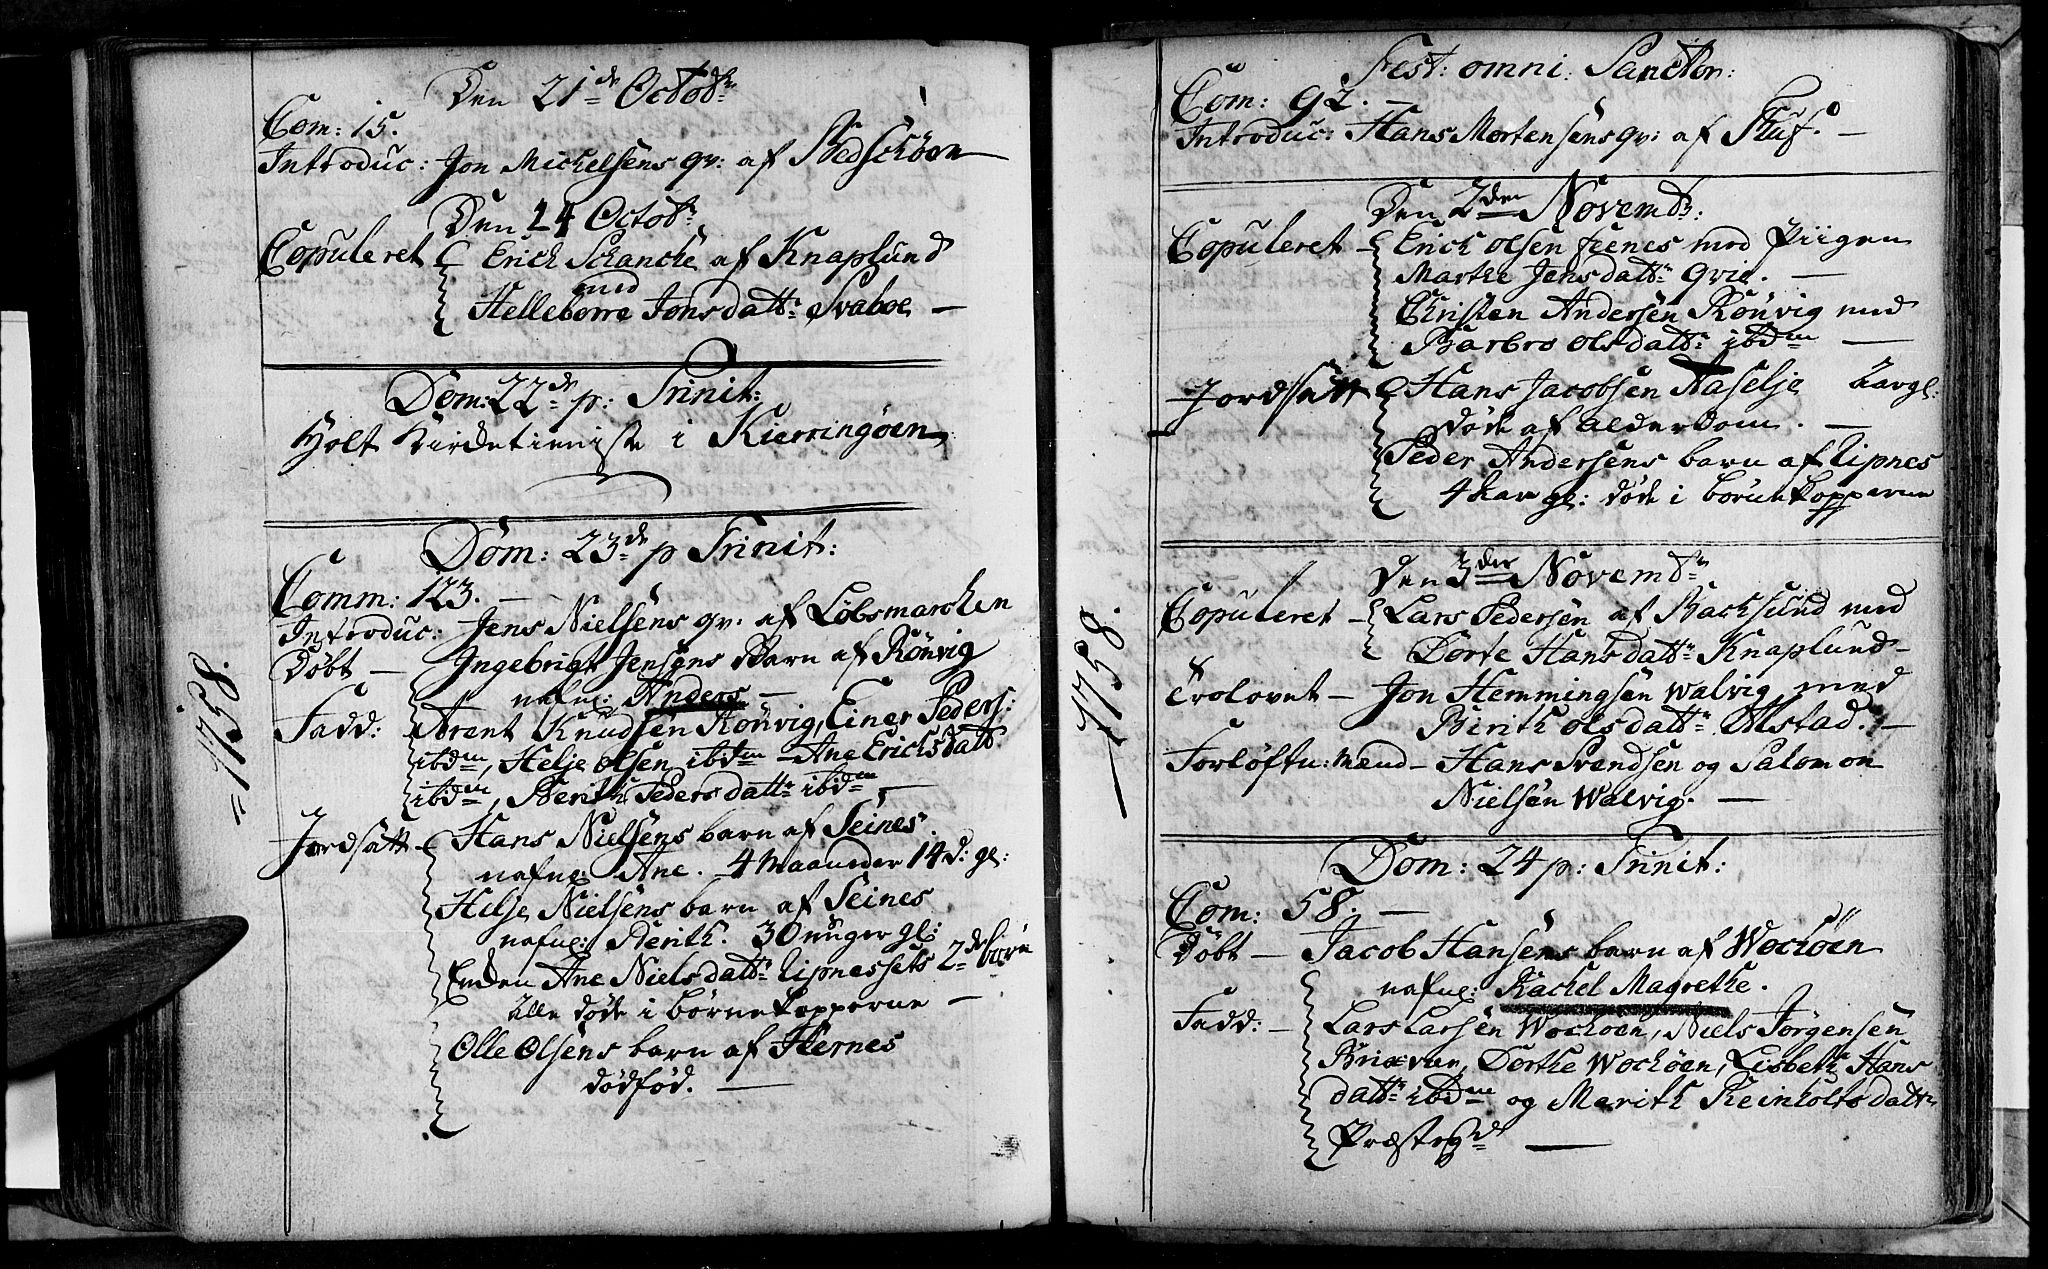 Den 21de Octobr:
Com: 15.
Introduc: Jon Michelsens qv: af Nedschöen
Den 24 Octobr:
Copuleret Erich Schancke af Knaplund
med
Helleborre Jonsdattr Svaboe —
Dom: 22de p: Trinit:
Holt Kirchetieniste i Kierringöen
Dom: 23de p Trinit:
Comm: 123. —
Introduc: Jens Nielsens qv: af Löbsmarchen
Döbt — Ingebrigt Jensens Barn af Rönvig
nafnl: Anders —
Fadd: Arent Knudsen Rönvig, Einer Peders:
ibdm, Helje Olsen ibdm — Ane Ericksdatt
ibdm, Berith Pedersdattr ibdm —
Jordsatt — Hans Nielsens barn af Seines
nafnl: Ane. 4 Maaneder 14 d: gl:
Helje Nielsens barn af Seines
nafnl: Berith. 30 uger gl:
Enchen Ane Nielsdattr Lipnessets 2de börn
alle döde i börnekopperne —
Olle Olsens barn af Hernes
dödföd. —
1758.
Fest: omni: Sanctor:
Com: 92. —
Introduc: Hans Mortensens qv: af Stuf. —
Den 2den Novembr:
Copuleret — Erich Olsen Feenes med Piigen
Marthe Jensdattr Qvie. —
Christen Andersen Rönvig med
Barbro Olsdattr ibdm —
Jordsatt Hans Jacobsen Naselje gl:
döde af alderdom. —
Peder Andersens barn af Lipnes
4 aar gl: döde i börnekopperne
Den 3den Novembr
Copuleret — Lars Pedersen af Backsund med
Dorte Hansdattr Knaplund —
Trolovet — Jon Hemmingsen Walvig med
Berith Olsdattr Alstad. —
Forlöftn: mænd — Hans Svendsen og Salomon
Nielsen Walvig. —
Dom: 24 p: Trinit:
Com: 58. —
Döbt — Jacob Hansens barn af Wochöen
nafnl: Rachel Magrethe.
Fadd: — Lars Larsen Wochöen, Niels Jörgensen
Dorthe Wochöen, Lisbeth Hans
dattr ibdm og Marith Reinholtsdattr
Præstegd —
1758.